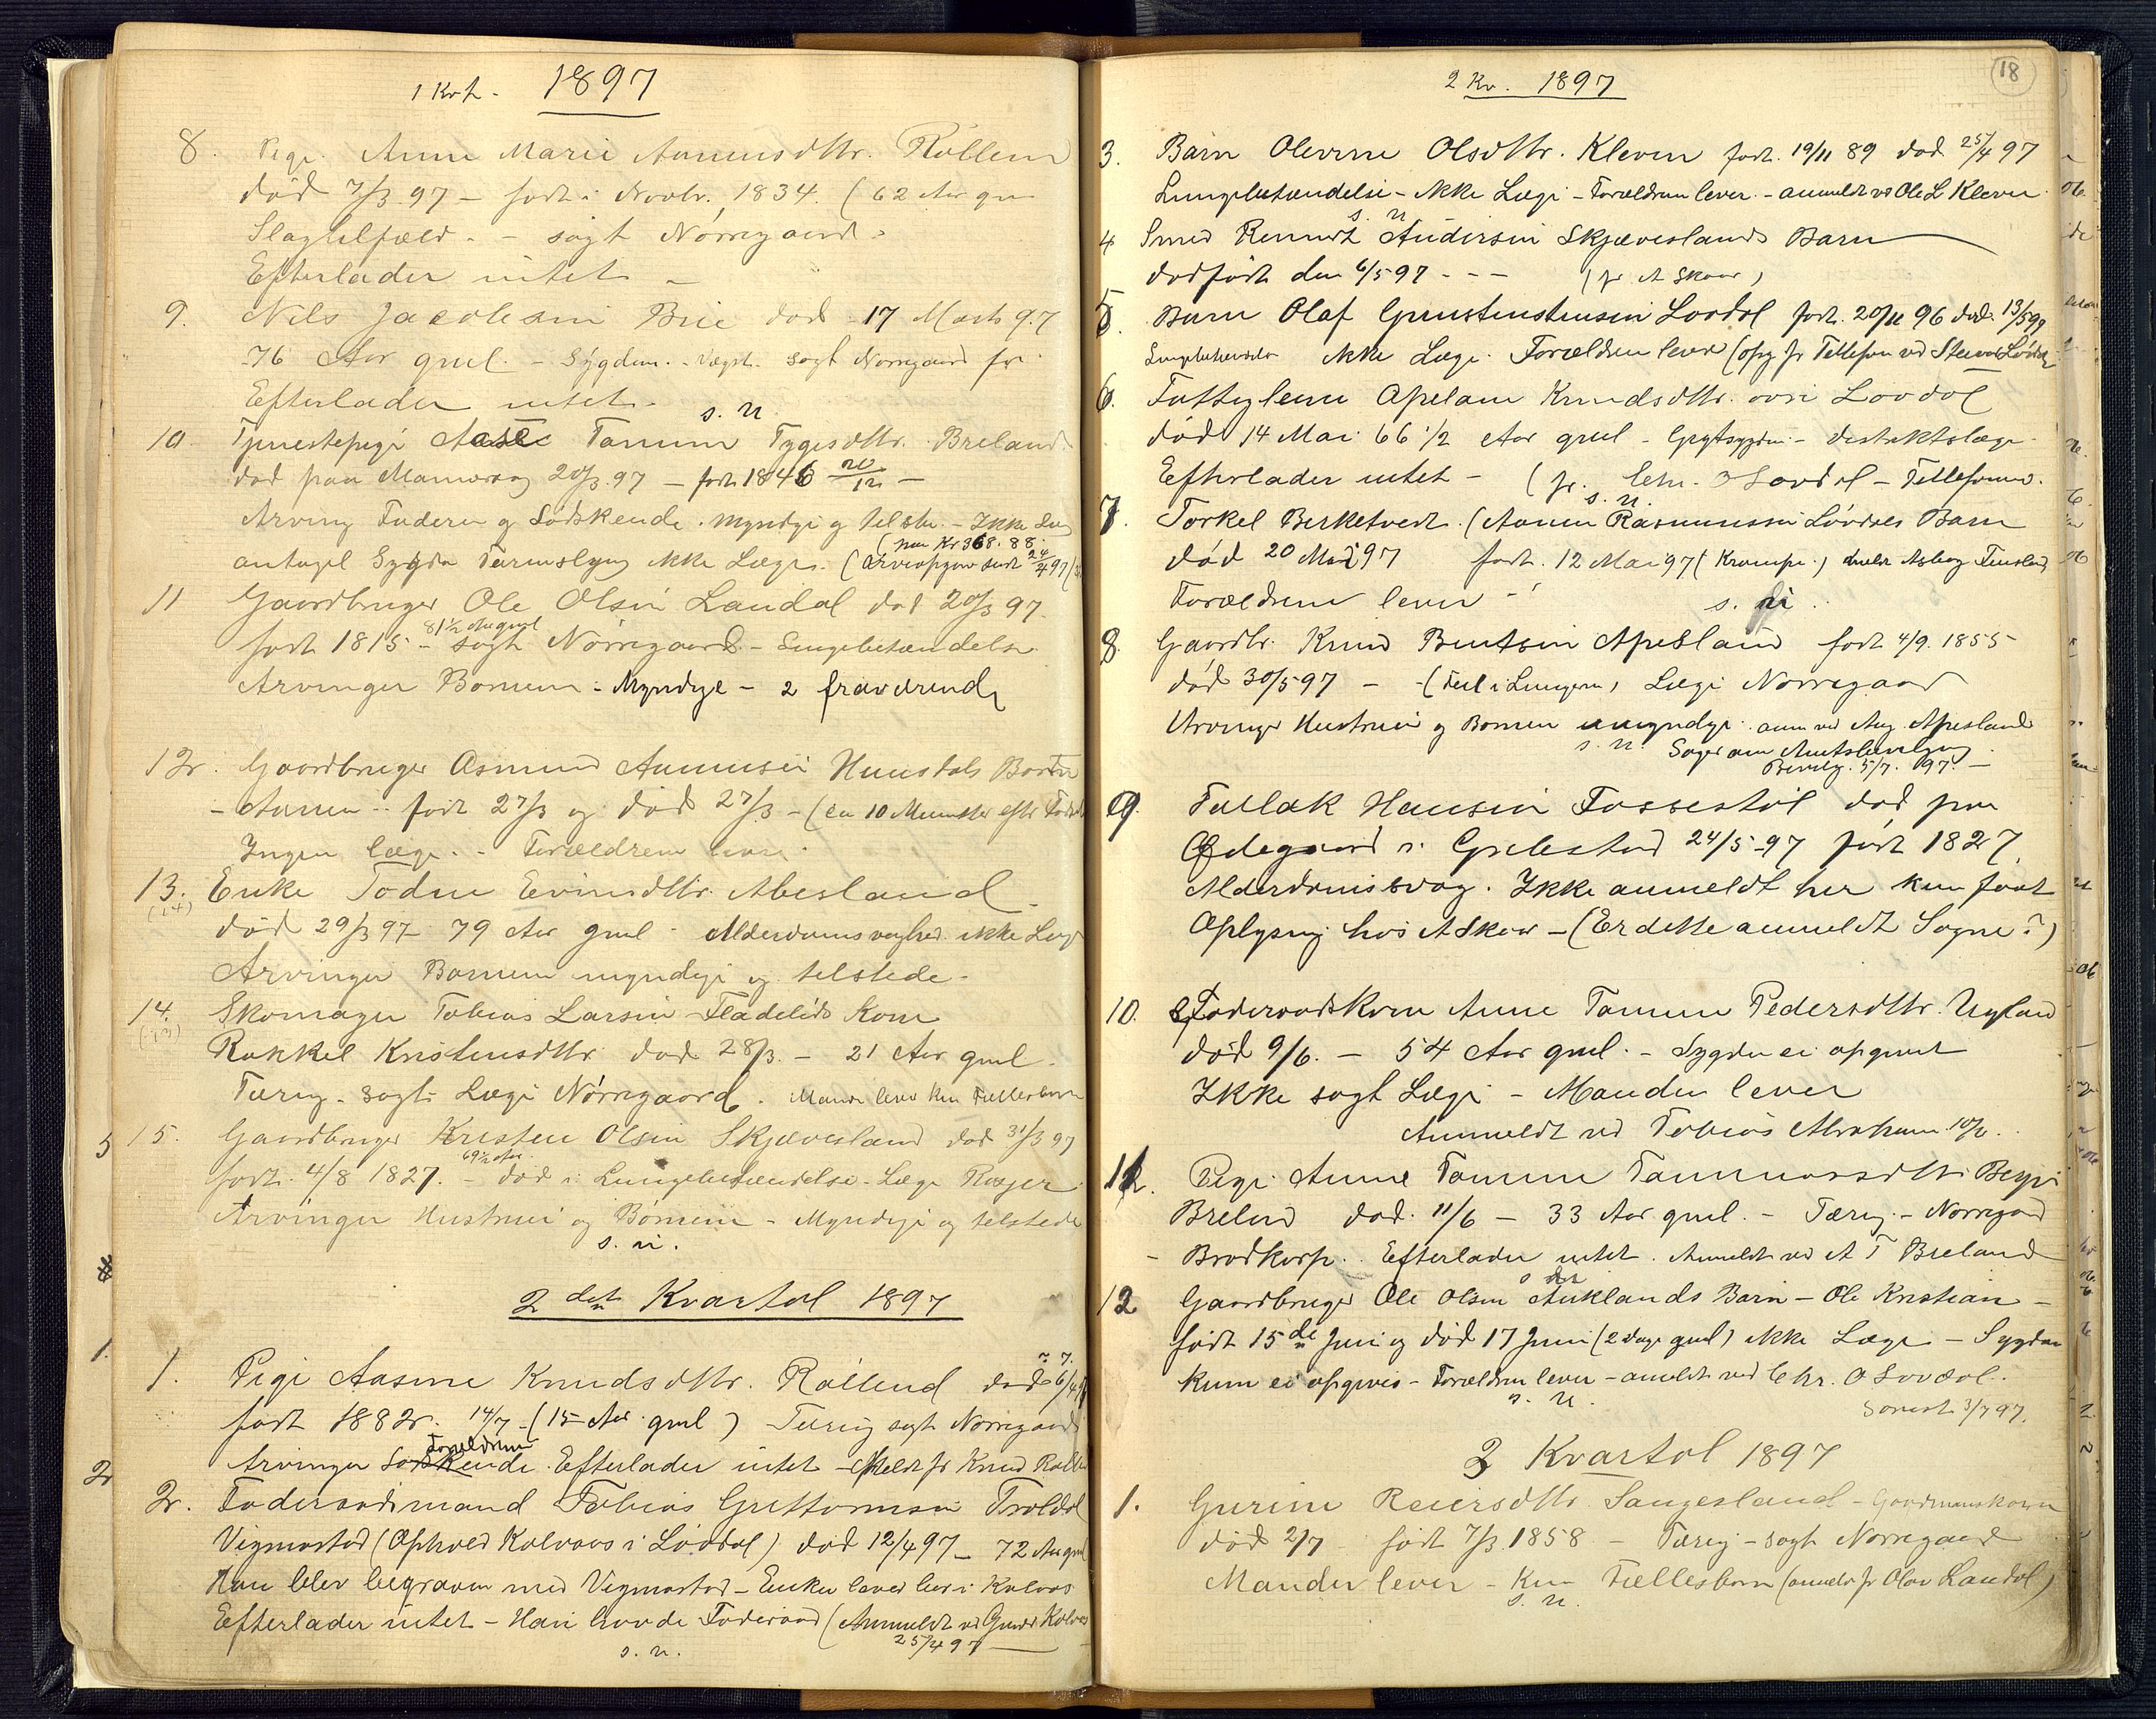 1 Kvt. 1897
8. Pige Anne Marie Aanensdttr. Røllend
død 7/3 97 - født i Novbr. 1834. (62 Aar gl
Slagtilfæld. - søgt Nørregaard.
Efterlader intet -
9. Nils Jacobsen Brie død 17 Marts 97
76 Aar gml. - Sygdom. - søgt Nørregaard
Efterlader intet. s. n.
10 Tjenestepige Aase Tomine Tygesdttr. Breland
død paa 20/3 97 - født 1846 20/12 -
Arving Faderen og Sødskende. Myndige og tilste. - Ikke
(paa Kr 368.88.
antagel Sygdom Tarmslyng ikke Læge. (Arveopgave sendt 24/4 97)
11 Gaardbruger Ole Olsen Landal død 20/3 97.
81 1/2 Aar gml
født 1815 - søgt Nørregaard - Lungebetændelse.
Arvinger Børnene - Myndige - 2 fraværende
12. Gaardbruger Asmund Aanensen Hunsdals Barn
- Aanen - født 27/3 og død 27/3 - (ca 10 Minutter efter
Ingen læge. - Forældrene lever.
13. Enke Todne Eivindsdttr. Abesland
(14)
død 29/3 97 - 79 Aar gml - Alderdomssvaghed ikke Læge
Arvinger Børnene myndige og tilstede -
14. Skomager Tobias Larsen Fladelids Kone
(13)
Rakkel Kristensdttr. død 28/3. - 21 Aar gml -
Tæring - søgt Læge Nørregaard. Manden lever kun Fællesbørn
15. Gaardbruger Kristen Olsen Skjævesland død 31/3 97
69 1/2 Aar
født 4/8 1827. - død i Lungebetændelse - Læge Rosjer
Arvinger Hustrui og Børnene - Myndige og tilstede
s. n.
2det Kvartal 1897
1. Pige Aasine Knudsdttr. Røllend død 6/4 97
født 1882. 14/7 - (15 Aar gml) Tæring søgt Nørregaard
Forældrene
Arvinger Sødskende. Efterlader intet - Meldt fr Knud
2. Føderaadsmand Tobias Guttormsen Troldal
Vigmostad (Ophold Kolvaas i Løvdal) død 12/4 97 - 72 Aar gml
Han blev begraven med Vigmostad - Enken lever her i Kolvaas
Efterlader intet - Han havde Føderaad (Anmeldt vd Gund Kolvaas
s. n. 25/4 97
2 Kv. 1897
18
3. Barn Olevine Olsdttr. Kleven født 19/11 89 død 25/4 97
Lungebetændelse - ikke Læge - Forældrene lever - anmeldt vd Ole L Kleven
s. n
4 Smed Andersen Skjæveslands Barn
dødfødt den 6/5 97 - - - (fr A Skaar)
5. Barn Olaf Lovdal født 20/11 96 død 13/5 97
Lungebetændelse ikke Læge. Forældrene lever (opg fr Tellefsen vd
6. Fattiglem Apelone Knudsdttr. øvre Lovdal
død 14 Mai 66 1/2 Aar gml - - distriktslæge
Efterlader intet - (fr. Chr. O Lovdal - Tellefsen
s. n.
7. Torkel Birketvedt. (Aanen Rasmussen Løvdals Barn
død 20 Mai 97 født 12 Mai 97 (Krampe.) Finsland
Forældrene lever - s. n.
8 Gaardbr. Knud Bentsen Apesland født 4/9 1855
død 30/5 97 - - (Feil i Lungen) Læge Nørregaard
Arvinger Hustruen og Børnene umyndige. anm vd Aug. Apesland
s. n. Søger om Amtsbevilgning
Bevilg. 5/7. 97. -
9. Tallak Hansen Fossestøl død paa
Ødegaard i Grebestad 24/5 97 født 1827
Alderdomssvag. Ikke anmeldt her kun faat
Oplysning hos A Skaar - (Er dette anmeldt Sogne?)
10. Føderaadskone Anne Tomine Pedersdttr. Ugland
død 9/6. - 54 Aar gml. - Sygdom ei opgivet
Ikke søgt Læge - Manden lever
Anmeldt vd Tobias Abraham 10/6.
11. Pige Anne Tomine Tommasdttr Begge
Breland død. 11/6 - 33 Aar gml. - Tæring - Nørregaard
- Brodkorp. Efterlader intet. Anmeldt vd A T Breland
12 Gaardbruger Ole Olsen Auklands Barn - Ole Kristian -
født 15de Juni og død 17 Juni (2 dage gml) ikke Læge - Sygdom
kunn ei opgives - Forældrene lever - anmeldt vd Chr. O Lovdal.
s. n.
Sorenst 3/7 97.
3 Kvartal 1897
1. Gurine Reiersdttr Langesland - Gaardmandskone
død 2/7 født 7/3 1858 - Tæring - søgt Nørregaard
Manden lever - Kun Fællesbørn (anmeldt fr Olav Landal)
s. n.